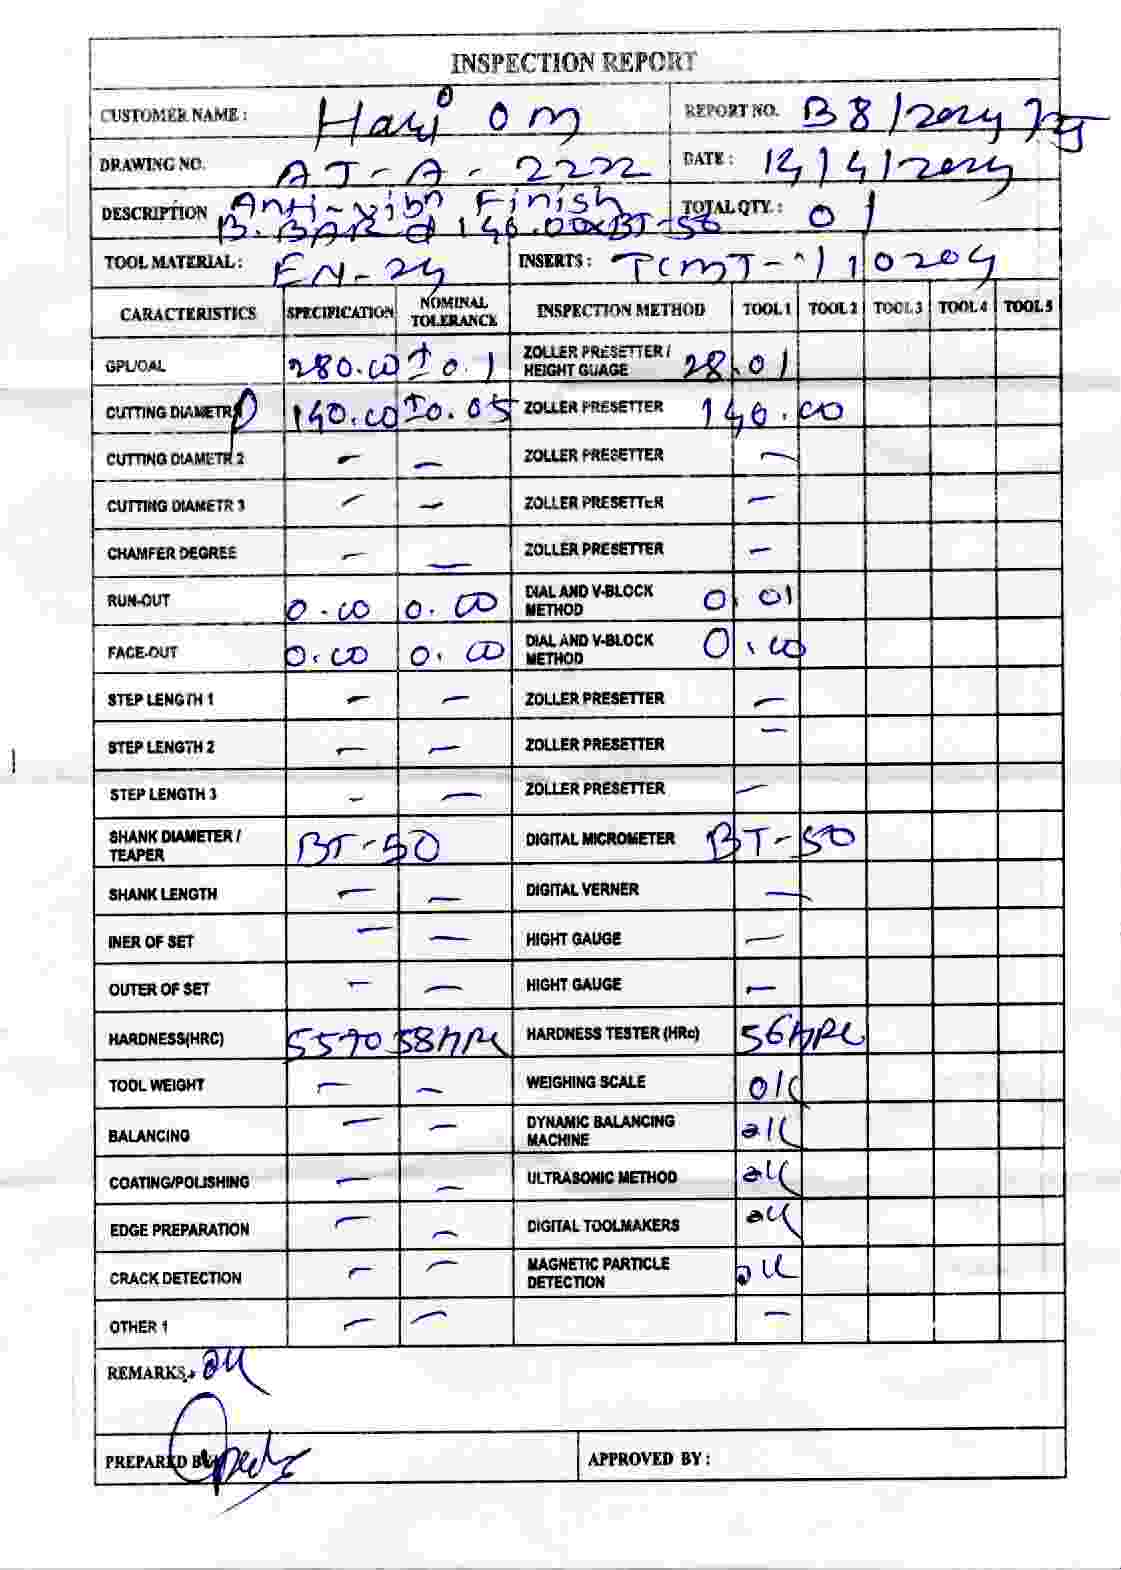 INSPECTION REPORT
CUSTOMER NAME : Hari Om REPORT NO. B8/2024
DRAWING NO. AJ-A-2222 DATE : 14/4/2024
DESCRIPTION Anti-vibn Finish TOTAL QTY. : 01
B.BAR Ø 140.00xBT-50
TOOL MATERIAL : EN-24 INSERTS : TCMT-110204
CARACTERISTICS SPECIFICATION NOMINAL TOLERANCE INSPECTION METHOD TOOL 1 TOOL 2 TOOL 3 TOOL 4 TOOL 5
GPL/OAL 280.00 ±0.1 ZOLLER PRESETTER / HEIGHT GUAGE 28.01
CUTTING DIAMETR 140.00 ±0.05 ZOLLER PRESETTER 140.00
CUTTING DIAMETR 2 – – ZOLLER PRESETTER –
CUTTING DIAMETR 3 – – ZOLLER PRESETTER –
CHAMFER DEGREE – – ZOLLER PRESETTER –
RUN-OUT 0.00 0.00 DIAL AND V-BLOCK METHOD 0.01
FACE-OUT 0.00 0.00 DIAL AND V-BLOCK METHOD 0.00
STEP LENGTH 1 – – ZOLLER PRESETTER –
STEP LENGTH 2 – – ZOLLER PRESETTER –
STEP LENGTH 3 – – ZOLLER PRESETTER –
SHANK DIAMETER / TEAPER BT-50 DIGITAL MICROMETER BT-50
SHANK LENGTH – – DIGITAL VERNER –
INER OF SET – – HIGHT GAUGE –
OUTER OF SET – – HIGHT GAUGE –
HARDNESS(HRC) 55 TO 58 HRC HARDNESS TESTER (HRc) 56 HRC
TOOL WEIGHT – – WEIGHING SCALE ok
BALANCING – – DYNAMIC BALANCING MACHINE ok
COATING/POLISHING – – ULTRASONIC METHOD ok
EDGE PREPARATION – – DIGITAL TOOLMAKERS ok
CRACK DETECTION – – MAGNETIC PARTICLE DETECTION ok
OTHER 1 – – –
REMARKS : ok
PREPARED BY APPROVED BY :